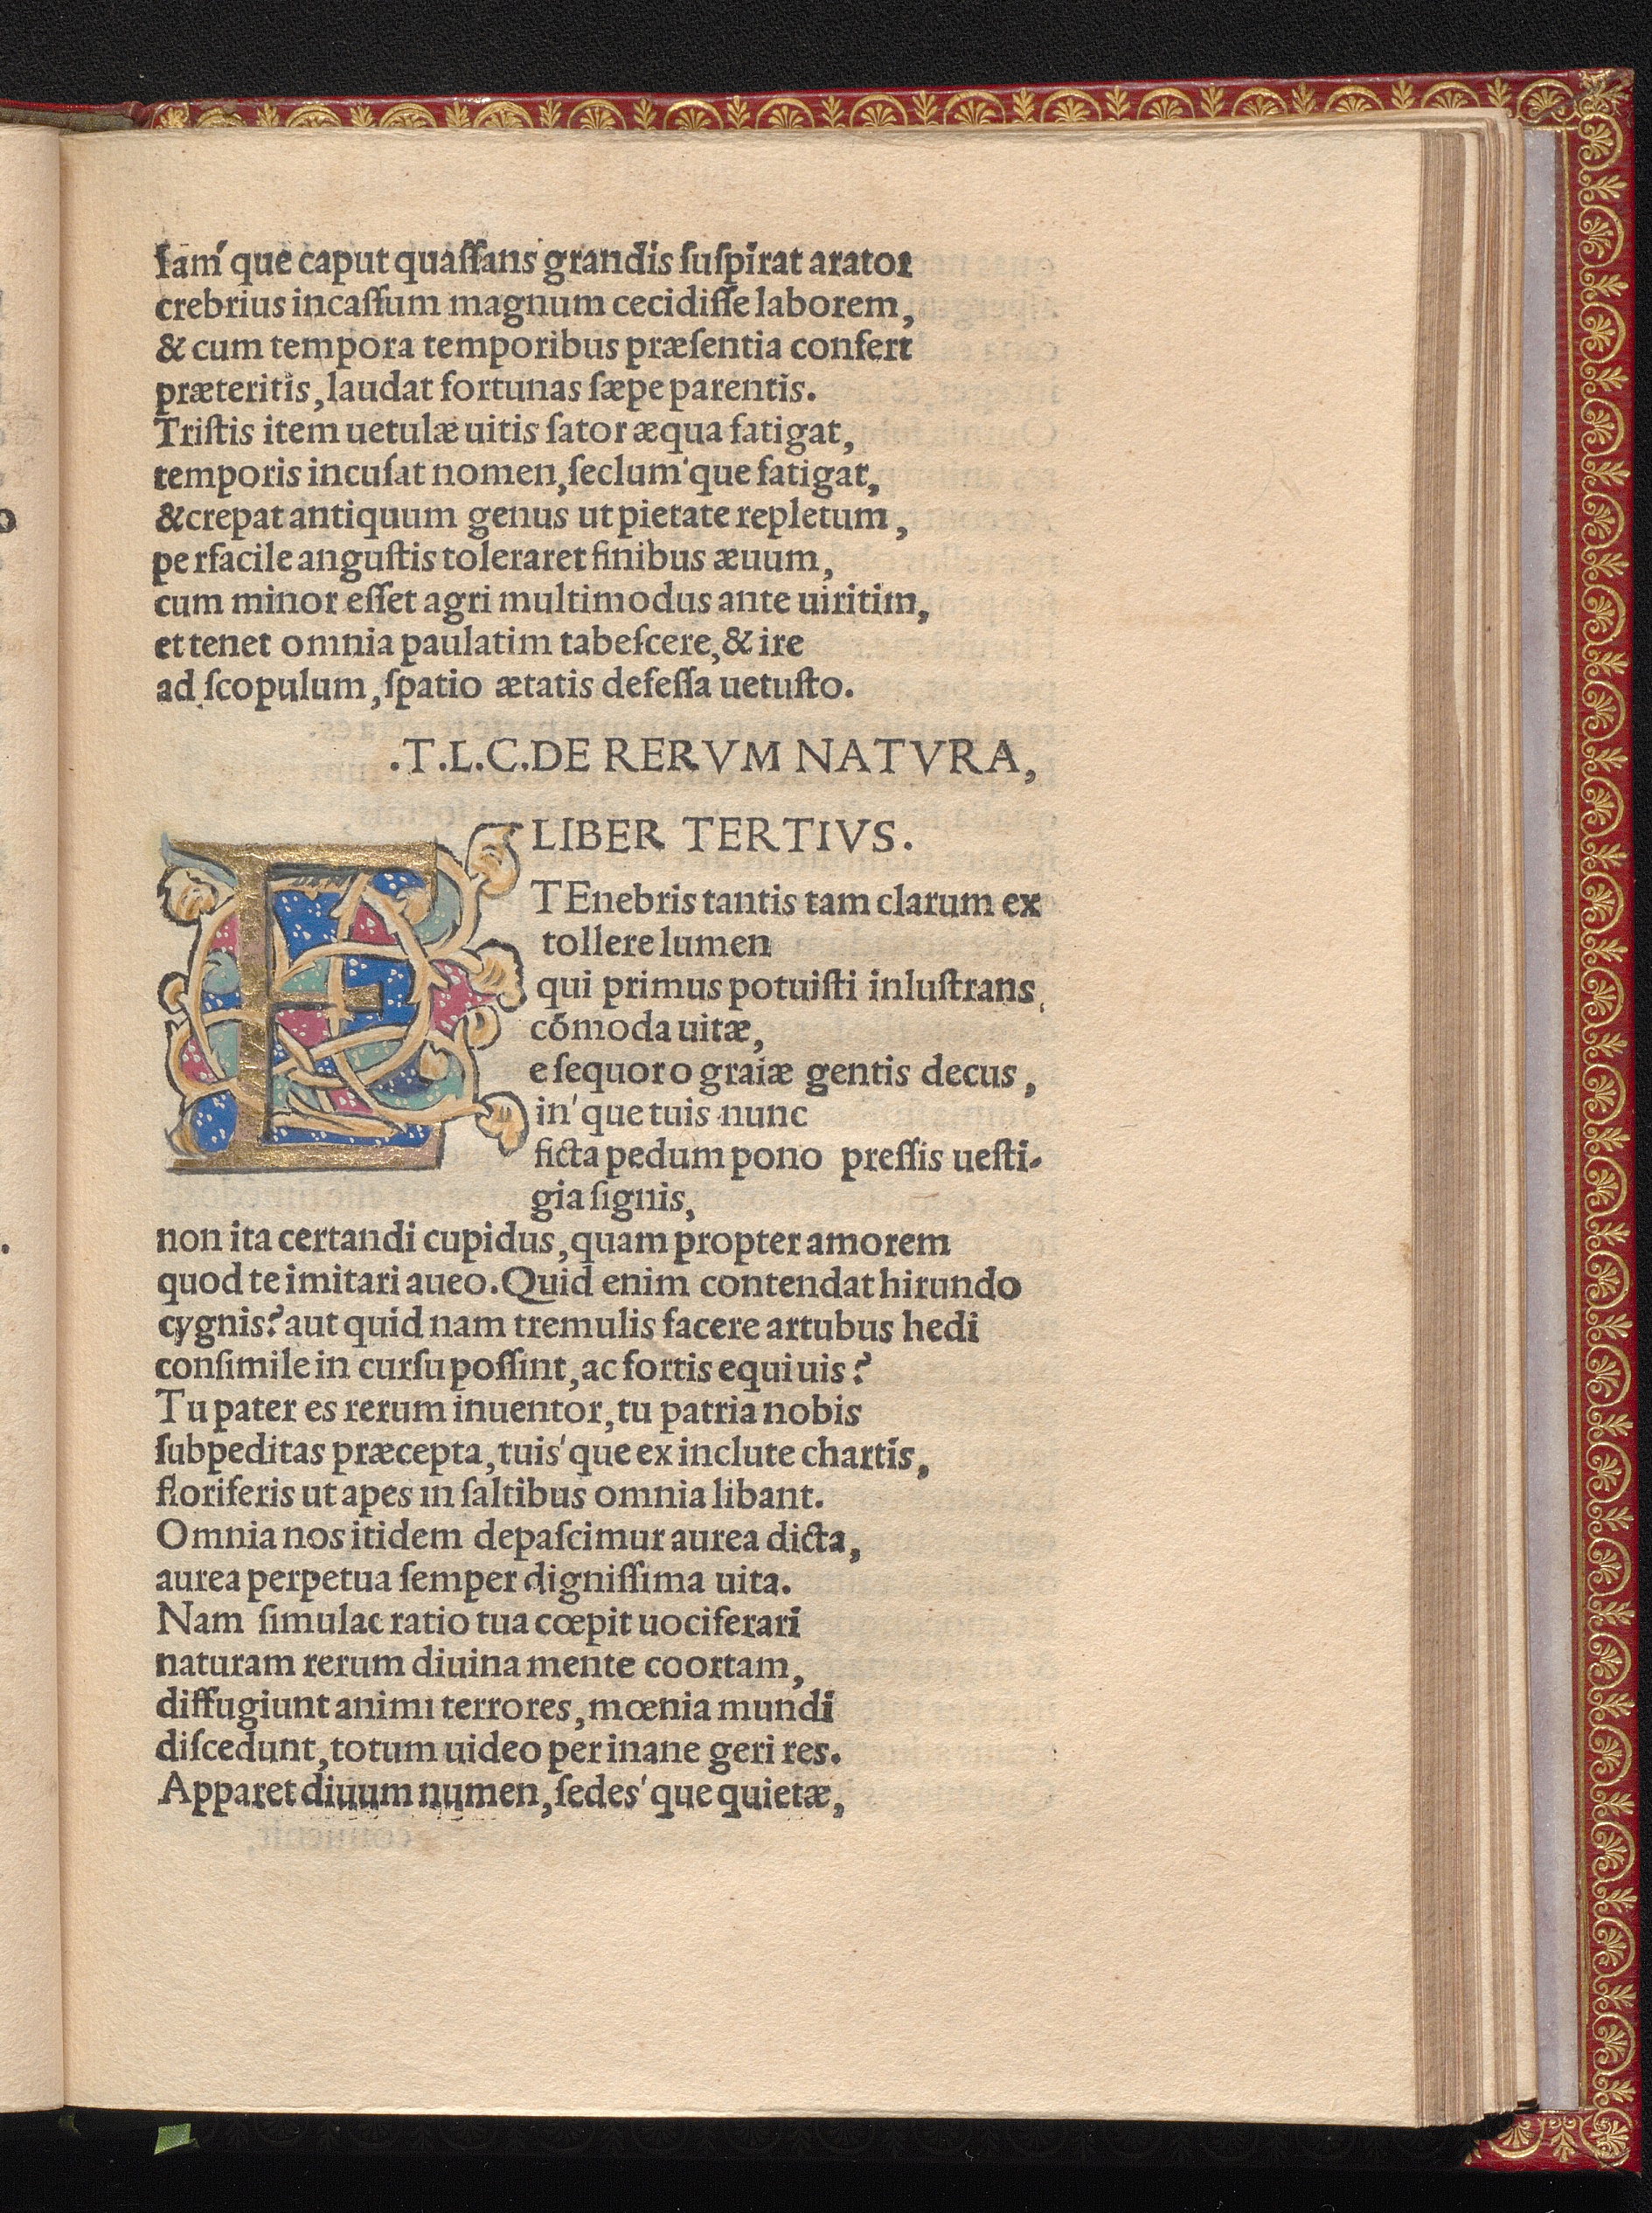 Iam'que caput quaſſans grandis ſuſpirat arator
crebrius incaſſum magnum cecidiſſe laborem,
& cum tempora temporibus præſentia confert
præteritis, laudat fortunas ſæpe parentis.
Triſtis item uetulæ uitis ſator æqua fatigat,
temporis incuſat nomen, ſeclum'que fatigat,
& crepat antiquum genus ut pietate repletum,
perfacile anguſtis toleraret finibus æuum,
cum minor eſſet agri multimodus ante uiritim,
et tenet omnia paulatim tabeſcere, & ire
ad ſcopulum, ſpatio ætatis defeſſa uetuſto.
.T.L.C.DE RERVM NATVRA,
LIBER TERTIVS.
E TEnebris tantis tam clarum ex
tollere lumen
qui primus potuiſti inluſtrans
cōmoda uitæ,
e ſequor o graiæ gentis decus,
in'que tuis nunc
ficta pedum pono preſſis ueſti-
gia ſignis,
non ita certandi cupidus, quam propter amorem
quod te imitari aueo. Quid enim contendat hirundo
cygnis? aut quid nam tremulis facere artubus hedi
conſimile in curſu poſſint, ac fortis equi uis?
Tu pater es rerum inuentor, tu patria nobis
ſubpeditas præcepta, tuis'que ex inclute chartis,
floriferis ut apes in ſaltibus omnia libant.
Omnia nos itidem depaſcimur aurea dicta,
aurea perpetua ſemper digniſſima uita.
Nam ſimulac ratio tua cœpit uociferari
naturam rerum diuina mente coortam,
diffugiunt animi terrores, mœnia mundi
diſcedunt, totum uideo per inane geri res.
Apparet diuum numen, ſedes'que quietæ,